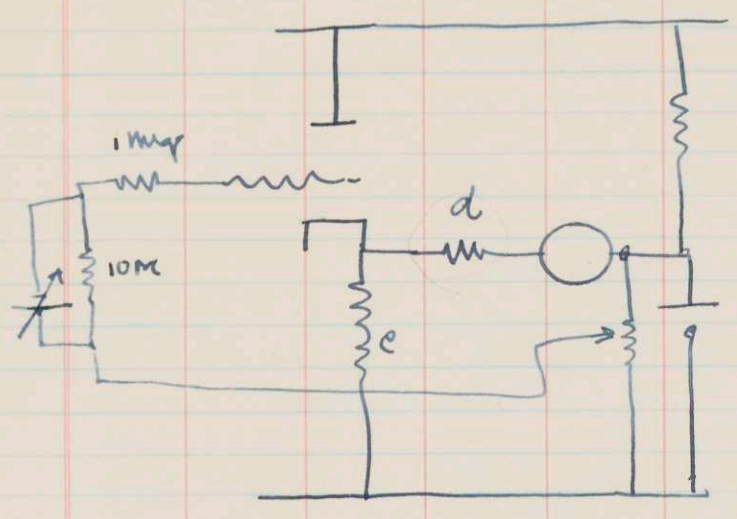 1 meg
d
10M
e